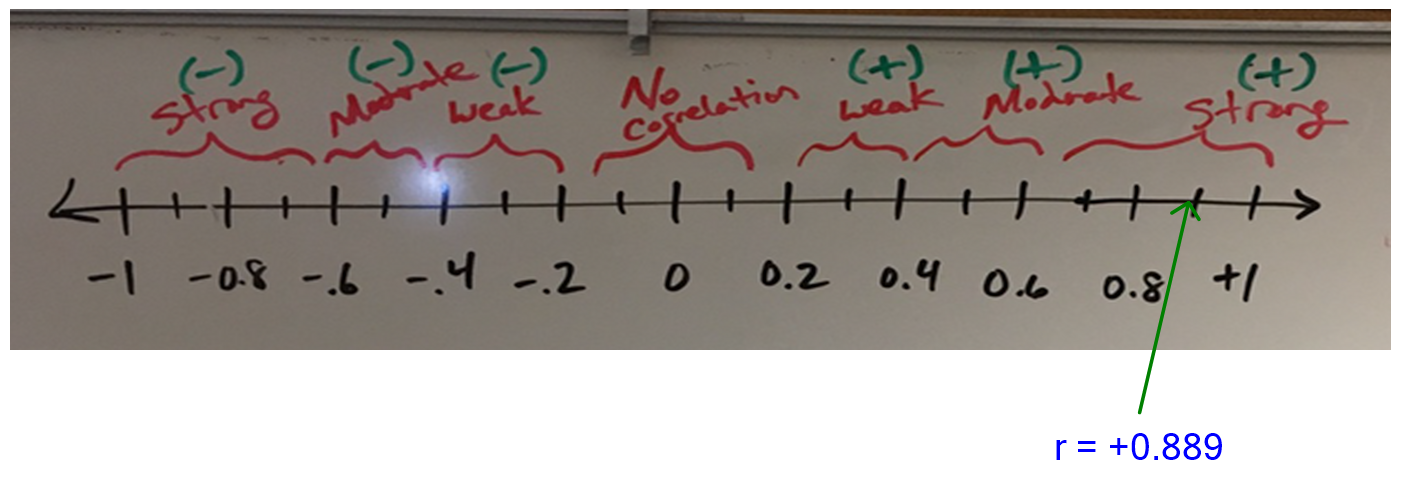 (-) (-) (-) (+) (+) (+)
Strong Modrate weak No Correlation weak Modrate Strong
-1 -0.8 -.6 -.4 -.2 0 0.2 0.4 0.6 0.8 +1
r = +0.889